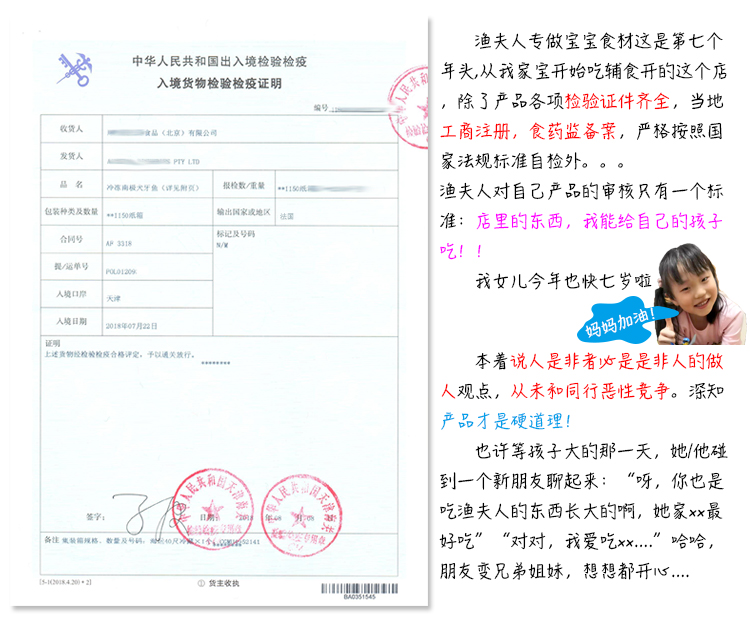 中华人民共和国出入境检验检疫
入境货物检验检疫证明
编号
收货人
食品（北京）有限公司
发货人
PTY LTD
品 名
冷冻南极犬牙鱼（详见附页）
报检数/重量
**1150纸箱
包装种类及数量
**1150纸箱
输出国家或地区
法国
合同号
AP 3318
标记及号码
N/M
提/运单号
POL01209
入境口岸
天津
入境日期
2018年07月22日
证明
上述货物经检验检疫合格评定，予以通关放行。
********
签字：
日期：
备注
[5-1(2018.4.20)*2]
① 货主收执
BA0351545
渔夫人专做宝宝食材这是第七个
年头,从我家宝开始吃辅食开的这个店
，除了产品各项检验证件齐全，当地
工商注册，食药监备案，严格按照国
家法规标准自检外。。。
渔夫人对自己产品的审核只有一个标
准：店里的东西，我能给自己的孩子
吃！！
我女儿今年也快七岁啦
妈妈加油！
本着说人是非者必是是非人的做
人观点，从未和同行恶性竞争。深知
产品才是硬道理！
也许等孩子大的那一天，她/他碰
到一个新朋友聊起来：“呀，你也是
吃渔夫人的东西长大的啊，她家xx最
好吃”“对对，我爱吃xx....”哈哈，
朋友变兄弟姐妹，想想都开心....